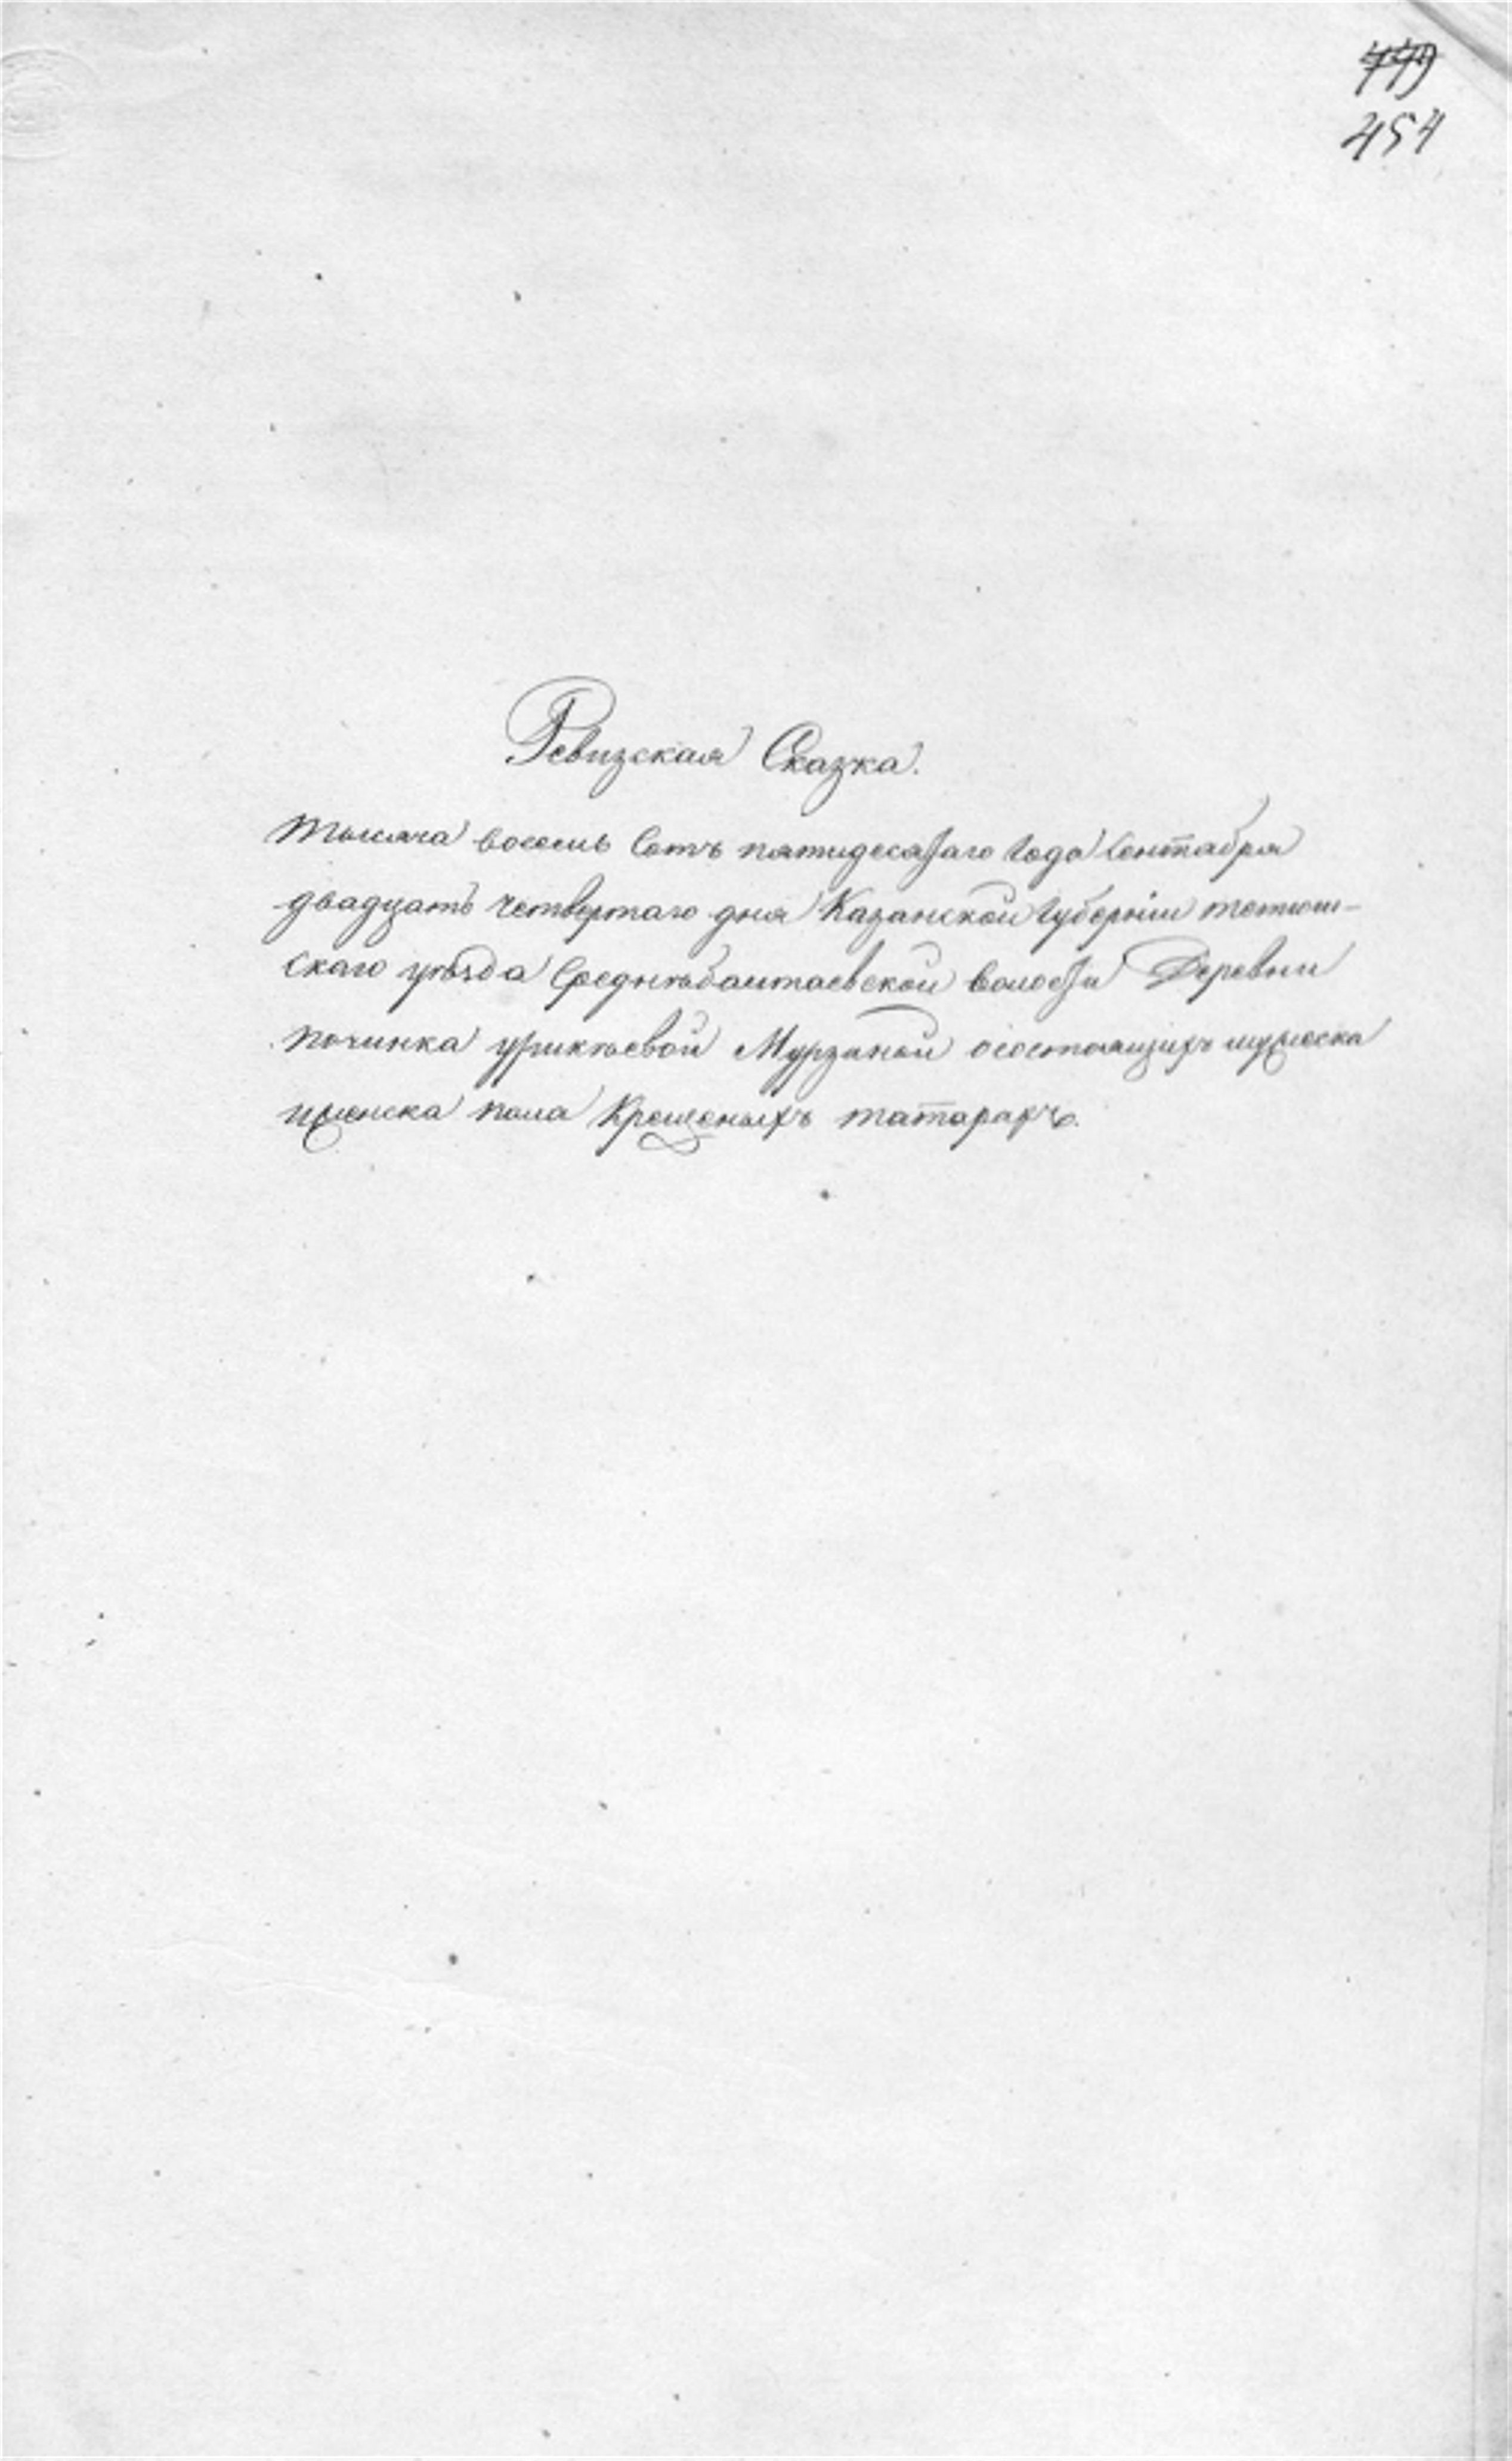 454
Ревизская Сказка.
Тысяча восемь Сотъ пятидесятаго Года Сентября
двадцать четвертаго дня Казанской Губерніи тетюш-
скаго уѣзда Среднѣбалтаевской волости Деревни
починка Мурзиной осостоящихъ мужеска
иженска пола Крещеныхъ татарахъ.